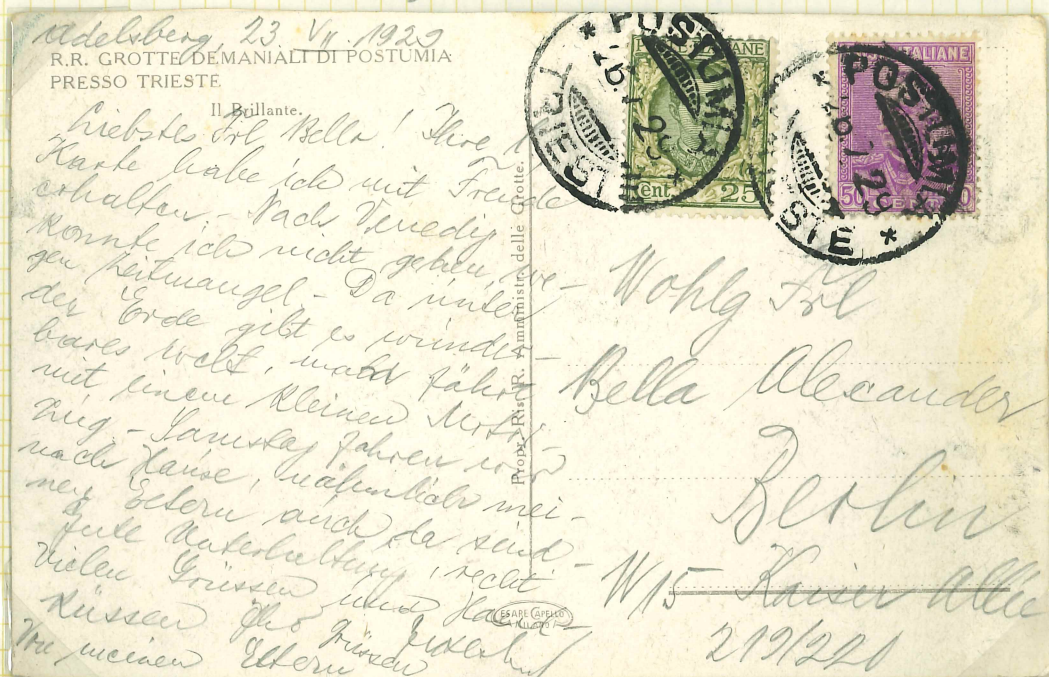 Adelsberg, 23 VII. 1929
R.R. GROTTE DEMANIALI DI POSTUMIA
PRESSO TRIESTE
Il Brillante.
Liebstes Frl Bella! Ihre l.
Karte habe ich mit Freude
erhalten. - Nach Venedig
konnte ich nicht gehen, we-
gen Zeitmangel - Da unter
der Erde gibt es wunder-
bares Welt, man fährt
mit einem kleinen Motor
Zug - Samstag fahren wir
nach Hause, nähmlich mei-
ne Eltern auch da sind
Gute Unterhaltung, recht
vielen Grüssen und Hand-
küssen Ihr
Von meinen Eltern Grüssen
Propr. Ris. R. Amministr. delle Grotte.
CESARE CAPELLO
MILANO
POSTE ITALIANE
Cent. 25
* POSTUMIA *
TRIESTE
ITALIANE
50 CENT 50
* POSTUMIA *
TRIESTE
Wohlg Frl
Bella Alexander
Berlin
W15 Kaiser Allee
219/220